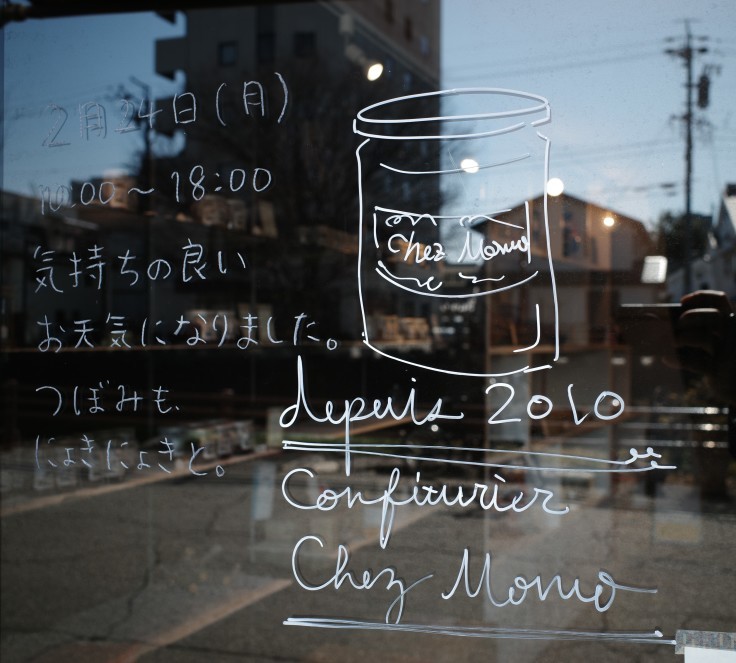 2月24日(月)
10:00〜18:00
気持ちの良い
お天気になりました。
つぼみも、
にょきにょきと。
Chez Momo
depuis 2010
Confiturier
Chez Momo